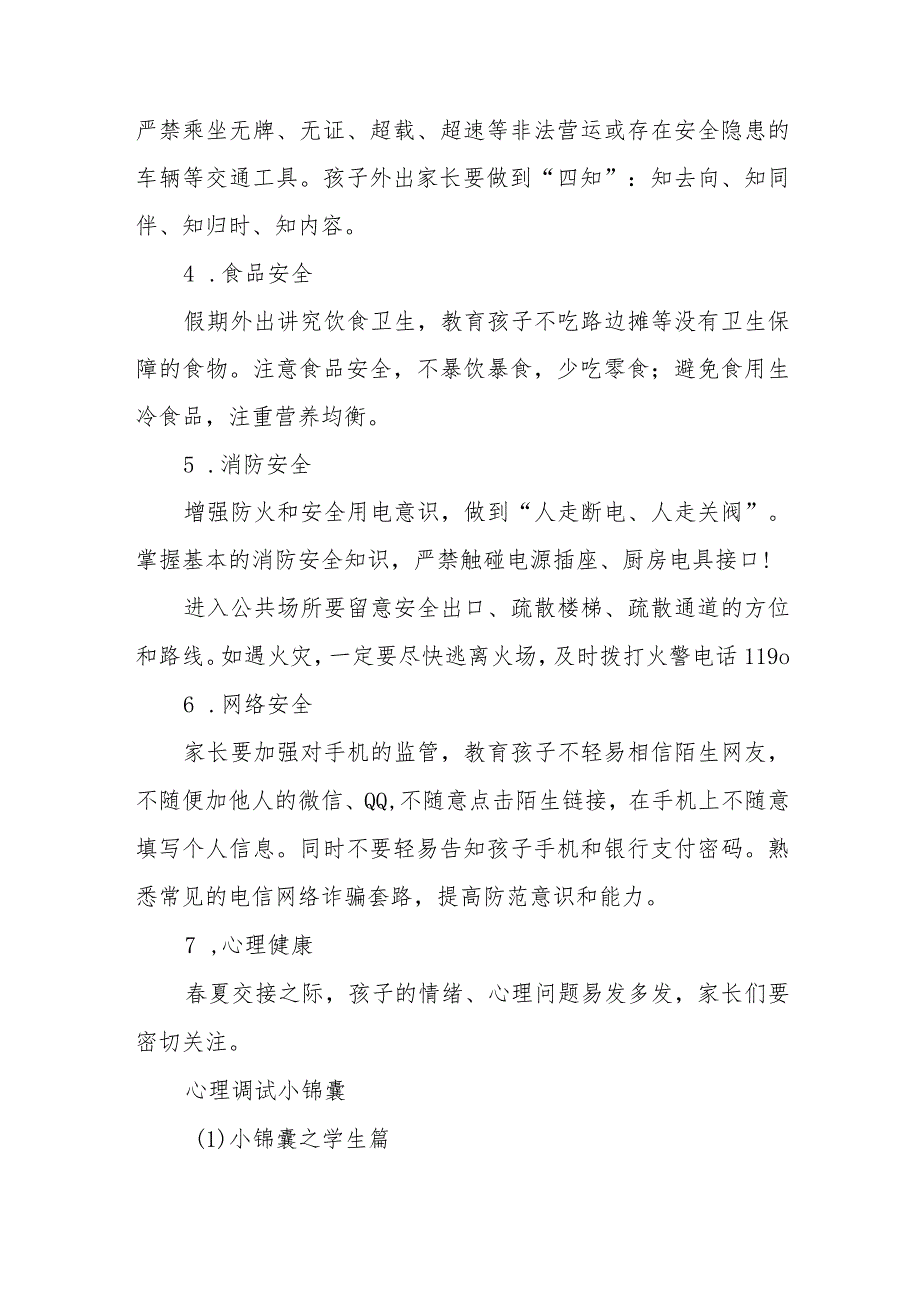 严禁乘坐无牌、无证、超载、超速等非法营运或存在安全隐患的
车辆等交通工具。孩子外出家长要做到“四知”：知去向、知同
伴、知归时、知内容。
4 .食品安全
假期外出讲究饮食卫生，教育孩子不吃路边摊等没有卫生保
障的食物。注意食品安全，不暴饮暴食，少吃零食；避免食用生
冷食品，注重营养均衡。
5 .消防安全
增强防火和安全用电意识，做到“人走断电、人走关阀”。
掌握基本的消防安全知识，严禁触碰电源插座、厨房电具接口!
进入公共场所要留意安全出口、疏散楼梯、疏散通道的方位
和路线。如遇火灾,一定要尽快逃离火场,及时拨打火警电话 119o
6 .网络安全
家长要加强对手机的监管，教育孩子不轻易相信陌生网友，
不随便加他人的微信、QQ,不随意点击陌生链接，在手机上不随意
填写个人信息。同时不要轻易告知孩子手机和银行支付密码。熟
悉常见的电信网络诈骗套路，提高防范意识和能力。
7 ,心理健康
春夏交接之际，孩子的情绪、心理问题易发多发，家长们要
密切关注。
心理调试小锦囊
(1)小锦囊之学生篇